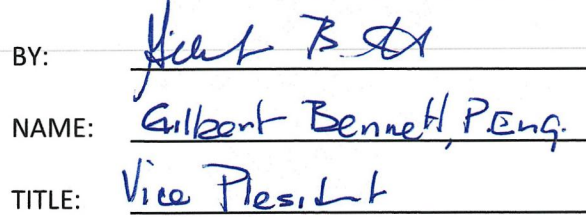 BY:
NAME: Gilbert Bennett, P.Eng.
TITLE: Vice President